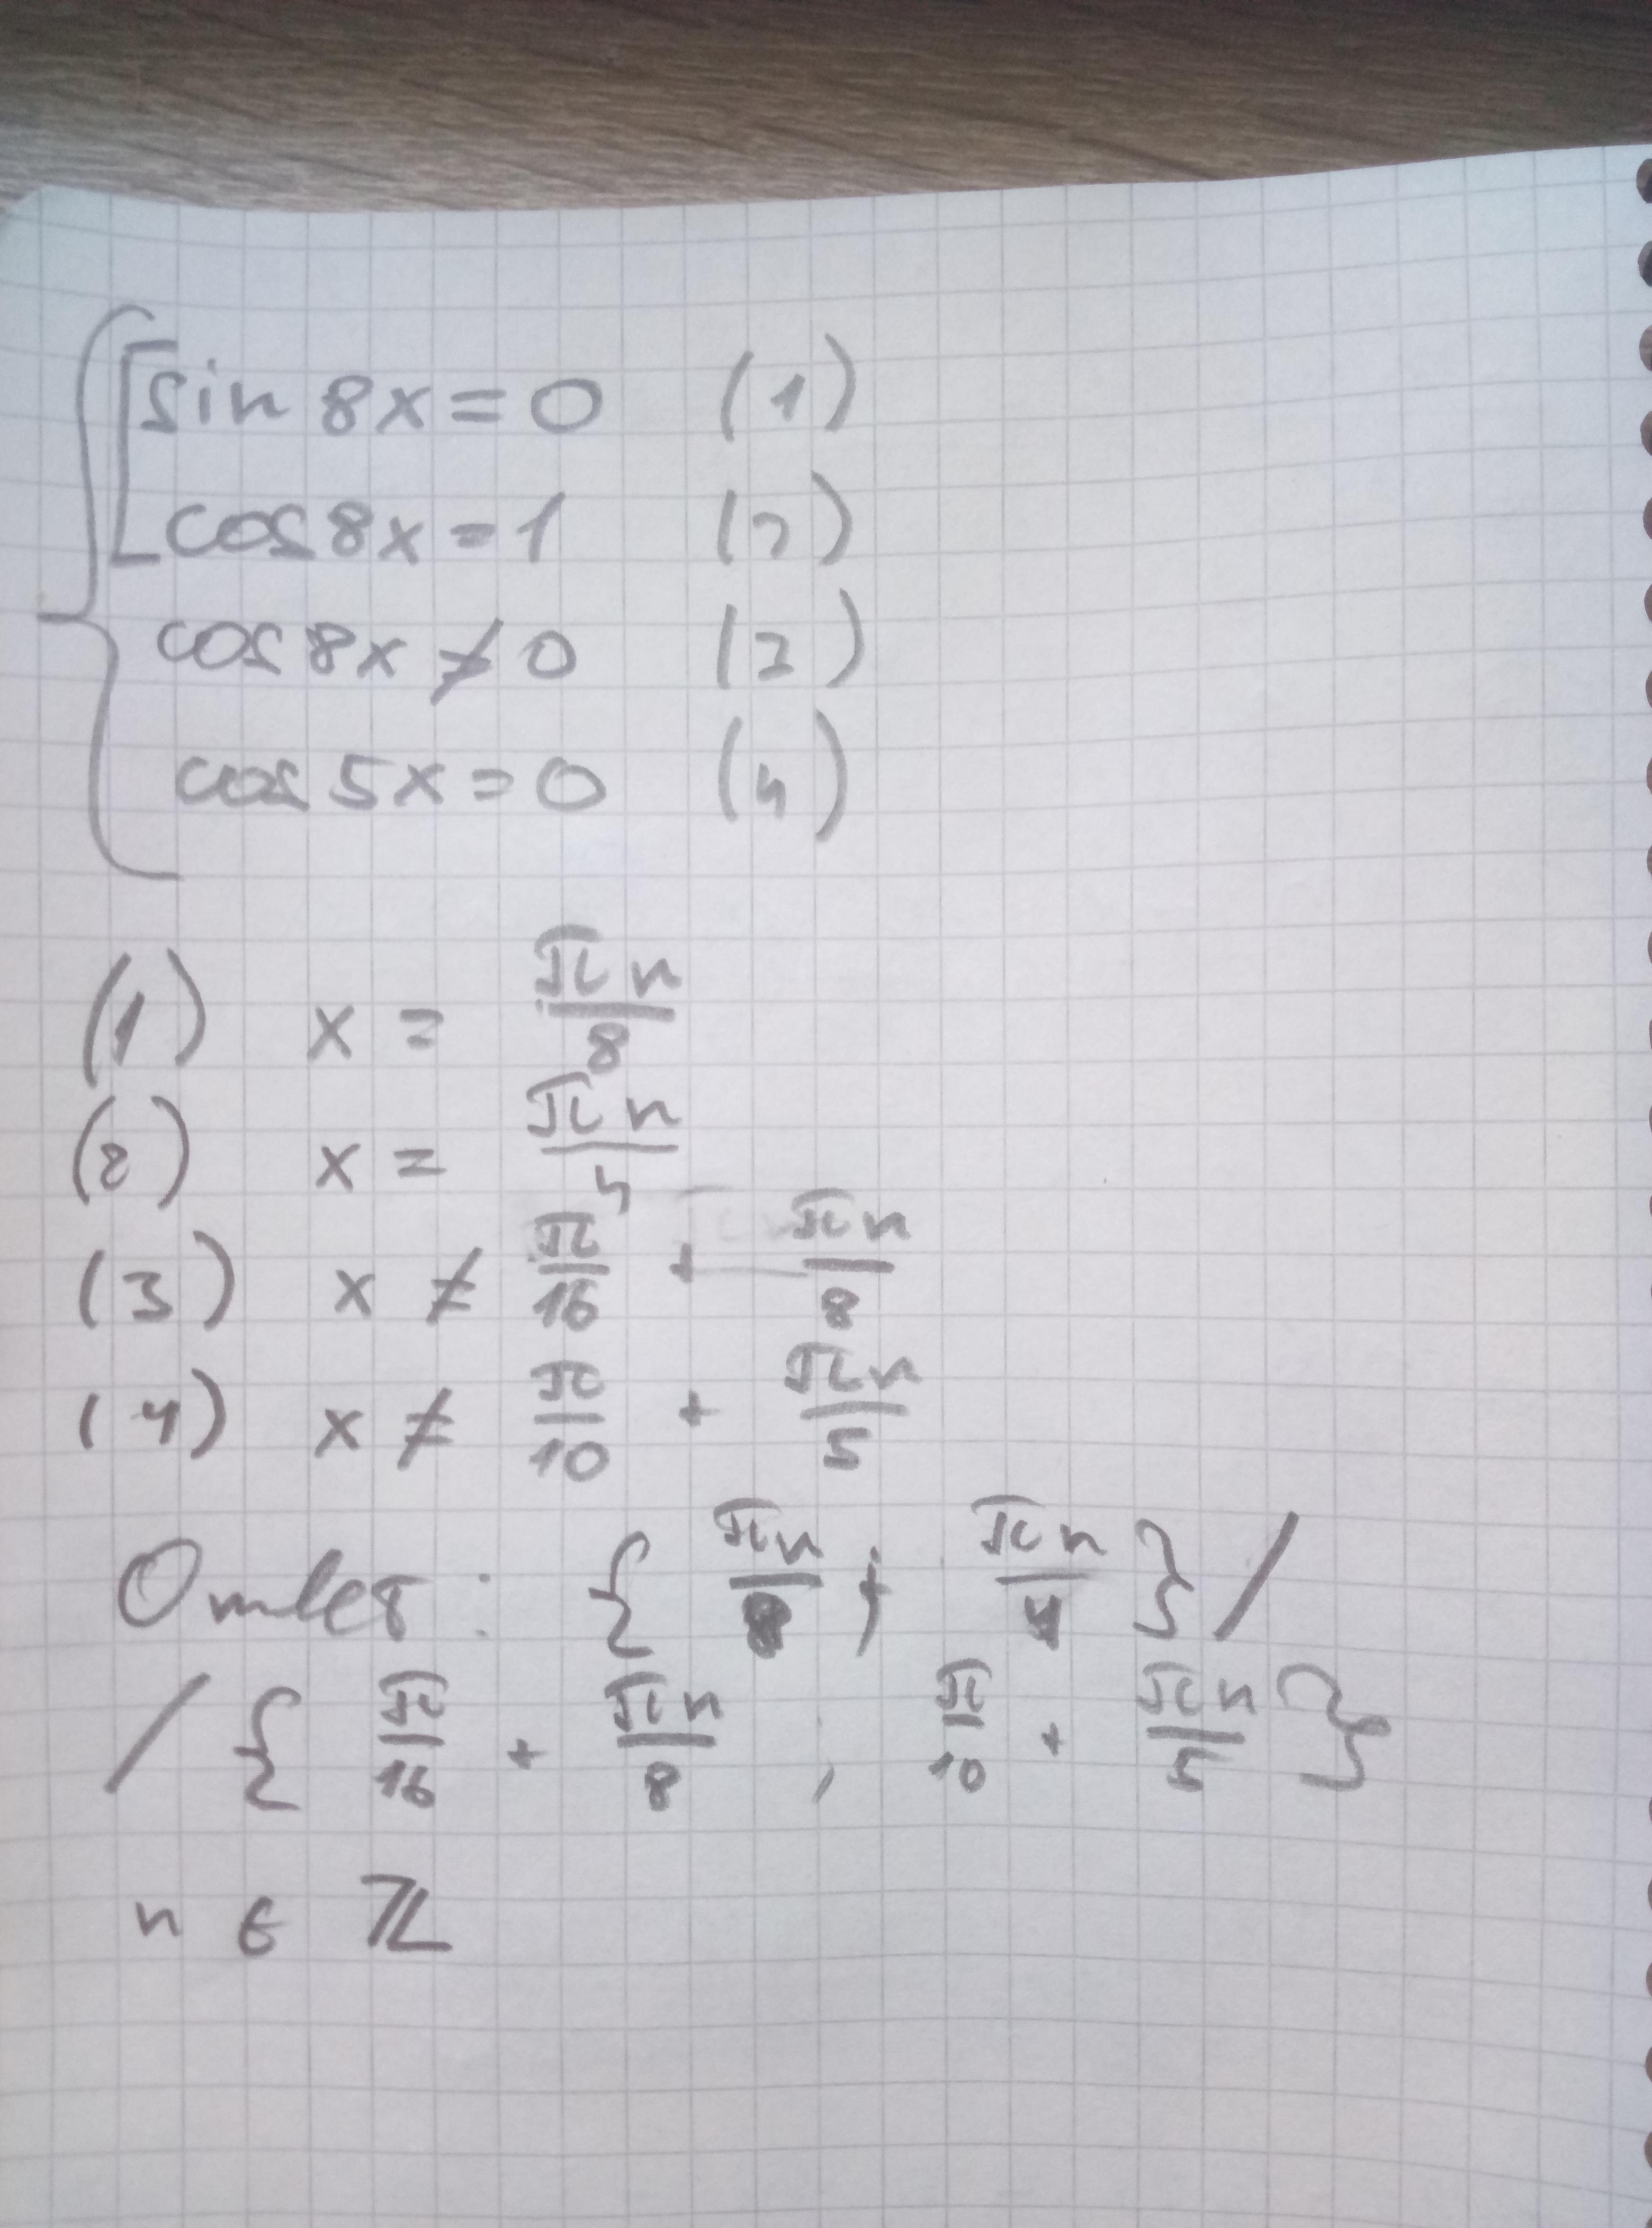 sin 8x = 0 (1)
cos 8x = 1 (2)
cos 8x ≠ 0 (3)
cos 5x = 0 (4)
(1) x = πn/8
(2) x = πn/4
(3) x ≠ π/16 + πn/8
(4) x ≠ π/10 + πn/5
Ответ: { πn/8 ; πn/4 } /
/ { π/16 + πn/8 , π/10 + πn/5 }
n ∈ ℤ